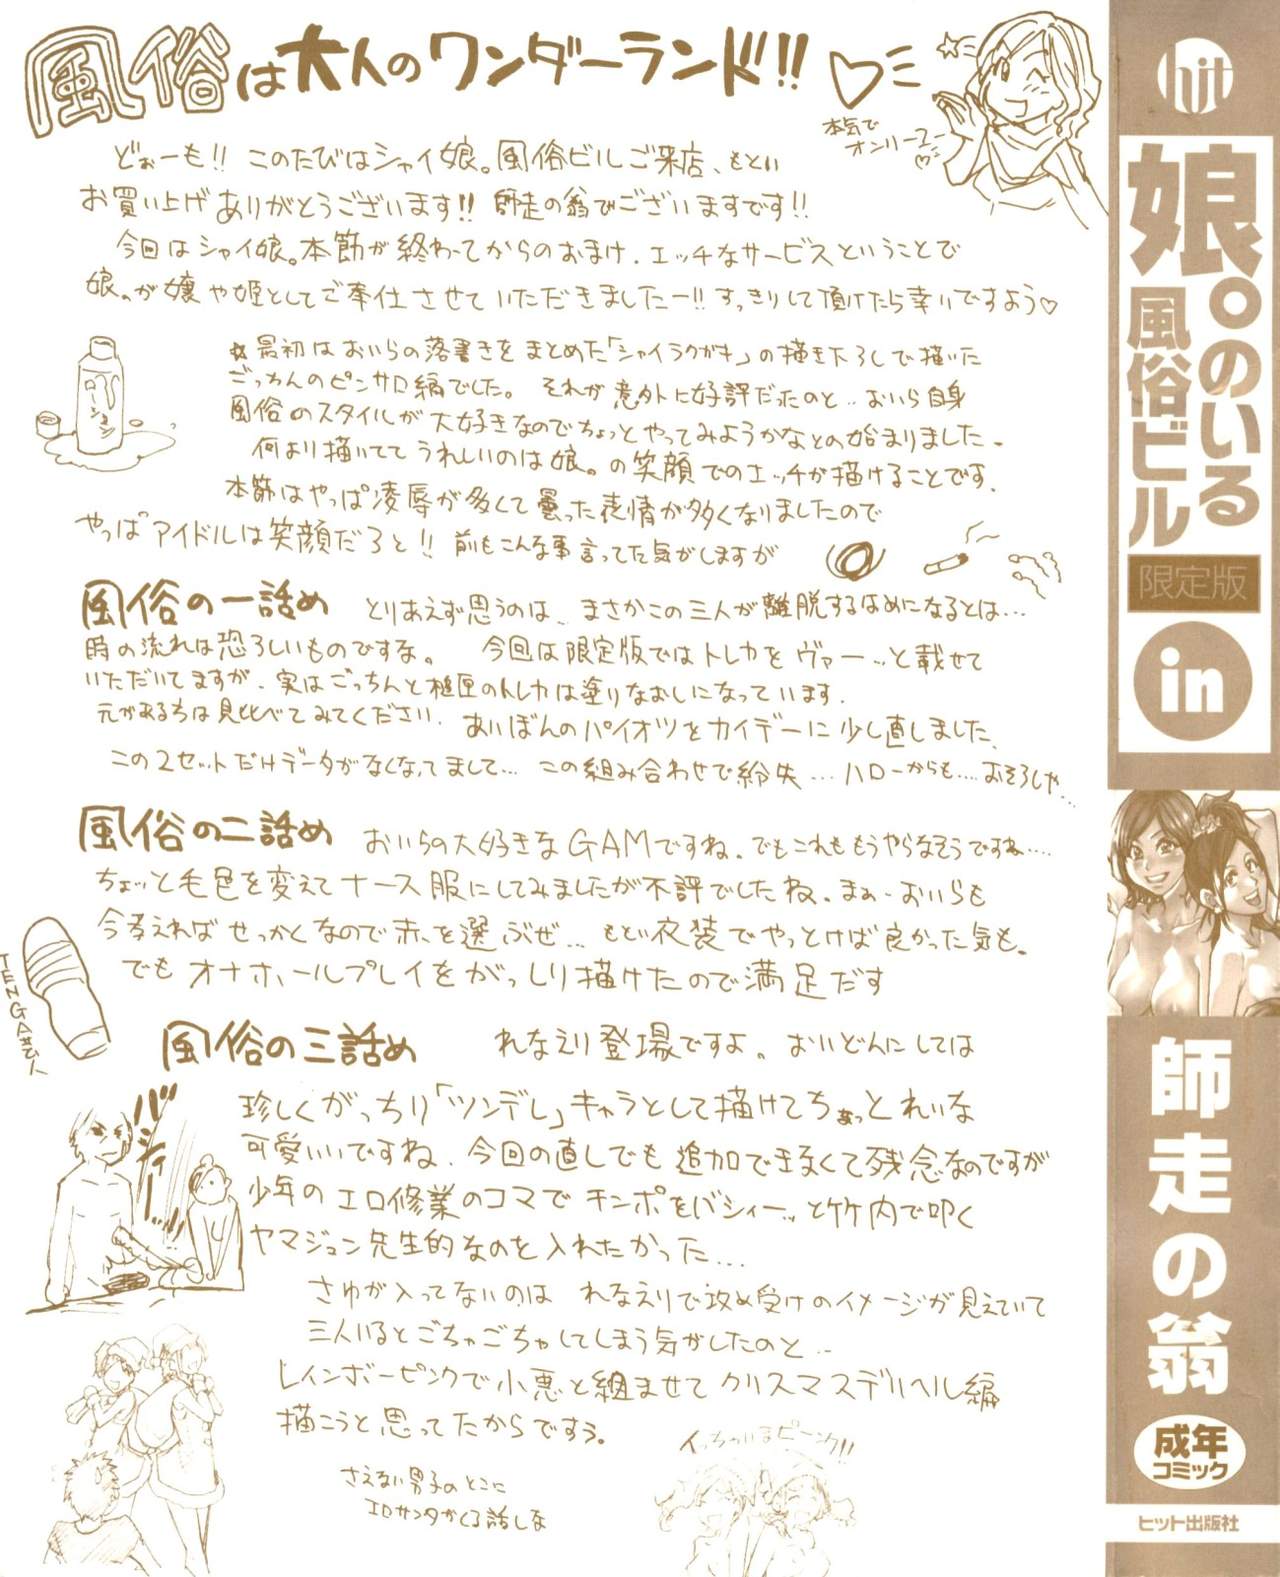 風俗は大人のワンダーランド!!
本気で
オンリーユー♡
どぉーも!! このたびはシャイ娘。風俗ビルご来店、もとい
お買い上げありがとうございます!! 師走の翁でございますです!!
今回はシャイ娘。本節が終わってからのおまけ、エッチなサービスということで
娘。が嬢や姫としてご奉仕させていただきましたー!! すっきりして頂けたら幸いですよう♡
ローション
☆最初はおいらの落書きをまとめた「シャイラクガキ」の描き下ろしで描いた
ごっちんのピンサロ編でした。それが意外に好評だったのと‥おいら自身
風俗のスタイルが大好きなのでちょっとやってみようかなとの始まりました。
何より描いててうれしいのは娘。の笑顔でのエッチが描けることです。
本節はやっぱ凌辱が多くて曇った表情が多くなりましたので
やっぱアイドルは笑顔だろと!! 前もこんな事言ってた気がしますが
風俗の一話め とりあえず思うのは、まさかこの三人が離脱するはめになるとは…
時の流れは恐ろしいものですな。 今回は限定版ではトレカをヴァーッと載せて
いただいてますが、実はごっちんと のトレカは塗りなおしになっています。
元がある方は見比べてみてください。あいぼんのパイオツをカイデーに少し直しました。
この2セットだけデータがなくなってまして… この組み合わせで紛失…ハローからも…おそろしや…
風俗の二話め おいらの大好きなGAMですね。でもこれももうやらなそうですね‥‥
ちょっと毛色を変えてナース服にしてみましたが不評でしたね。まぁ‥おいらも
今考えればせっかくなので赤を選ぶぜ…もとい衣装でやっとけば良かった気も。
でもオナホールプレイをがっしり描けたので満足だす
TENGA
風俗の三話め れなえり登場ですよ。おいどんにしては
珍しくがっちり「ツンデレ」キャラとして描けてちょっとれいな
可愛いですね。今回の直しでも追加できなくて残念なのですが
少年のエロ修業のコマでチンポをバシィーッと竹内で叩く
ヤマジュン先生的なのを入れたかった…
バシィィ
さゆが入ってないのは れなえりで攻め受けのイメージが見えていて
三人いるとごちゃごちゃしてしまう気がしたのと‥
レインボーピンクで小悪と組ませてクリスマスデリヘル編
描こうと思ってたからですぅ。
さえない男子のとこに
エロサンタがくる話しな
イっちゃいまピーンク!!
hit
娘。のいる
風俗ビル
限定版
in
師走の翁
成年
コミック
ヒット出版社